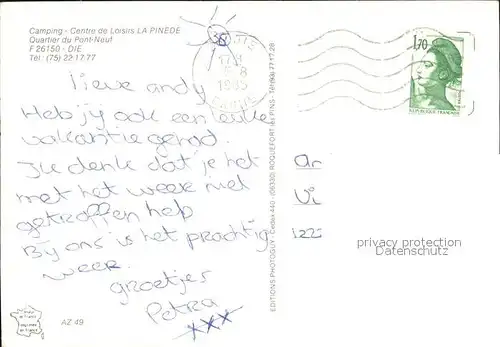 Camping - Centre de Loisirs LA PINEDE
Quartier du Pont-Neuf
F 26150 - DIE
Tél : (75) 22 17 77
lieve andy
Heb jij ook een leuke
vakantie gehad.
Ik denk dat je het
met het weer niet
getroffen heb
Bij ons is het prachtig
weer.
groetjes
Petra
xxx
AZ 49
EDITIONS PHOTOGUY - Cedex 440 - (06330) ROQUEFORT les PINS - Tél (93) 77 17 28
1985
1,70
REPUBLIQUE FRANCAISE
An
Vi
122
privacy protection
Datenschutz